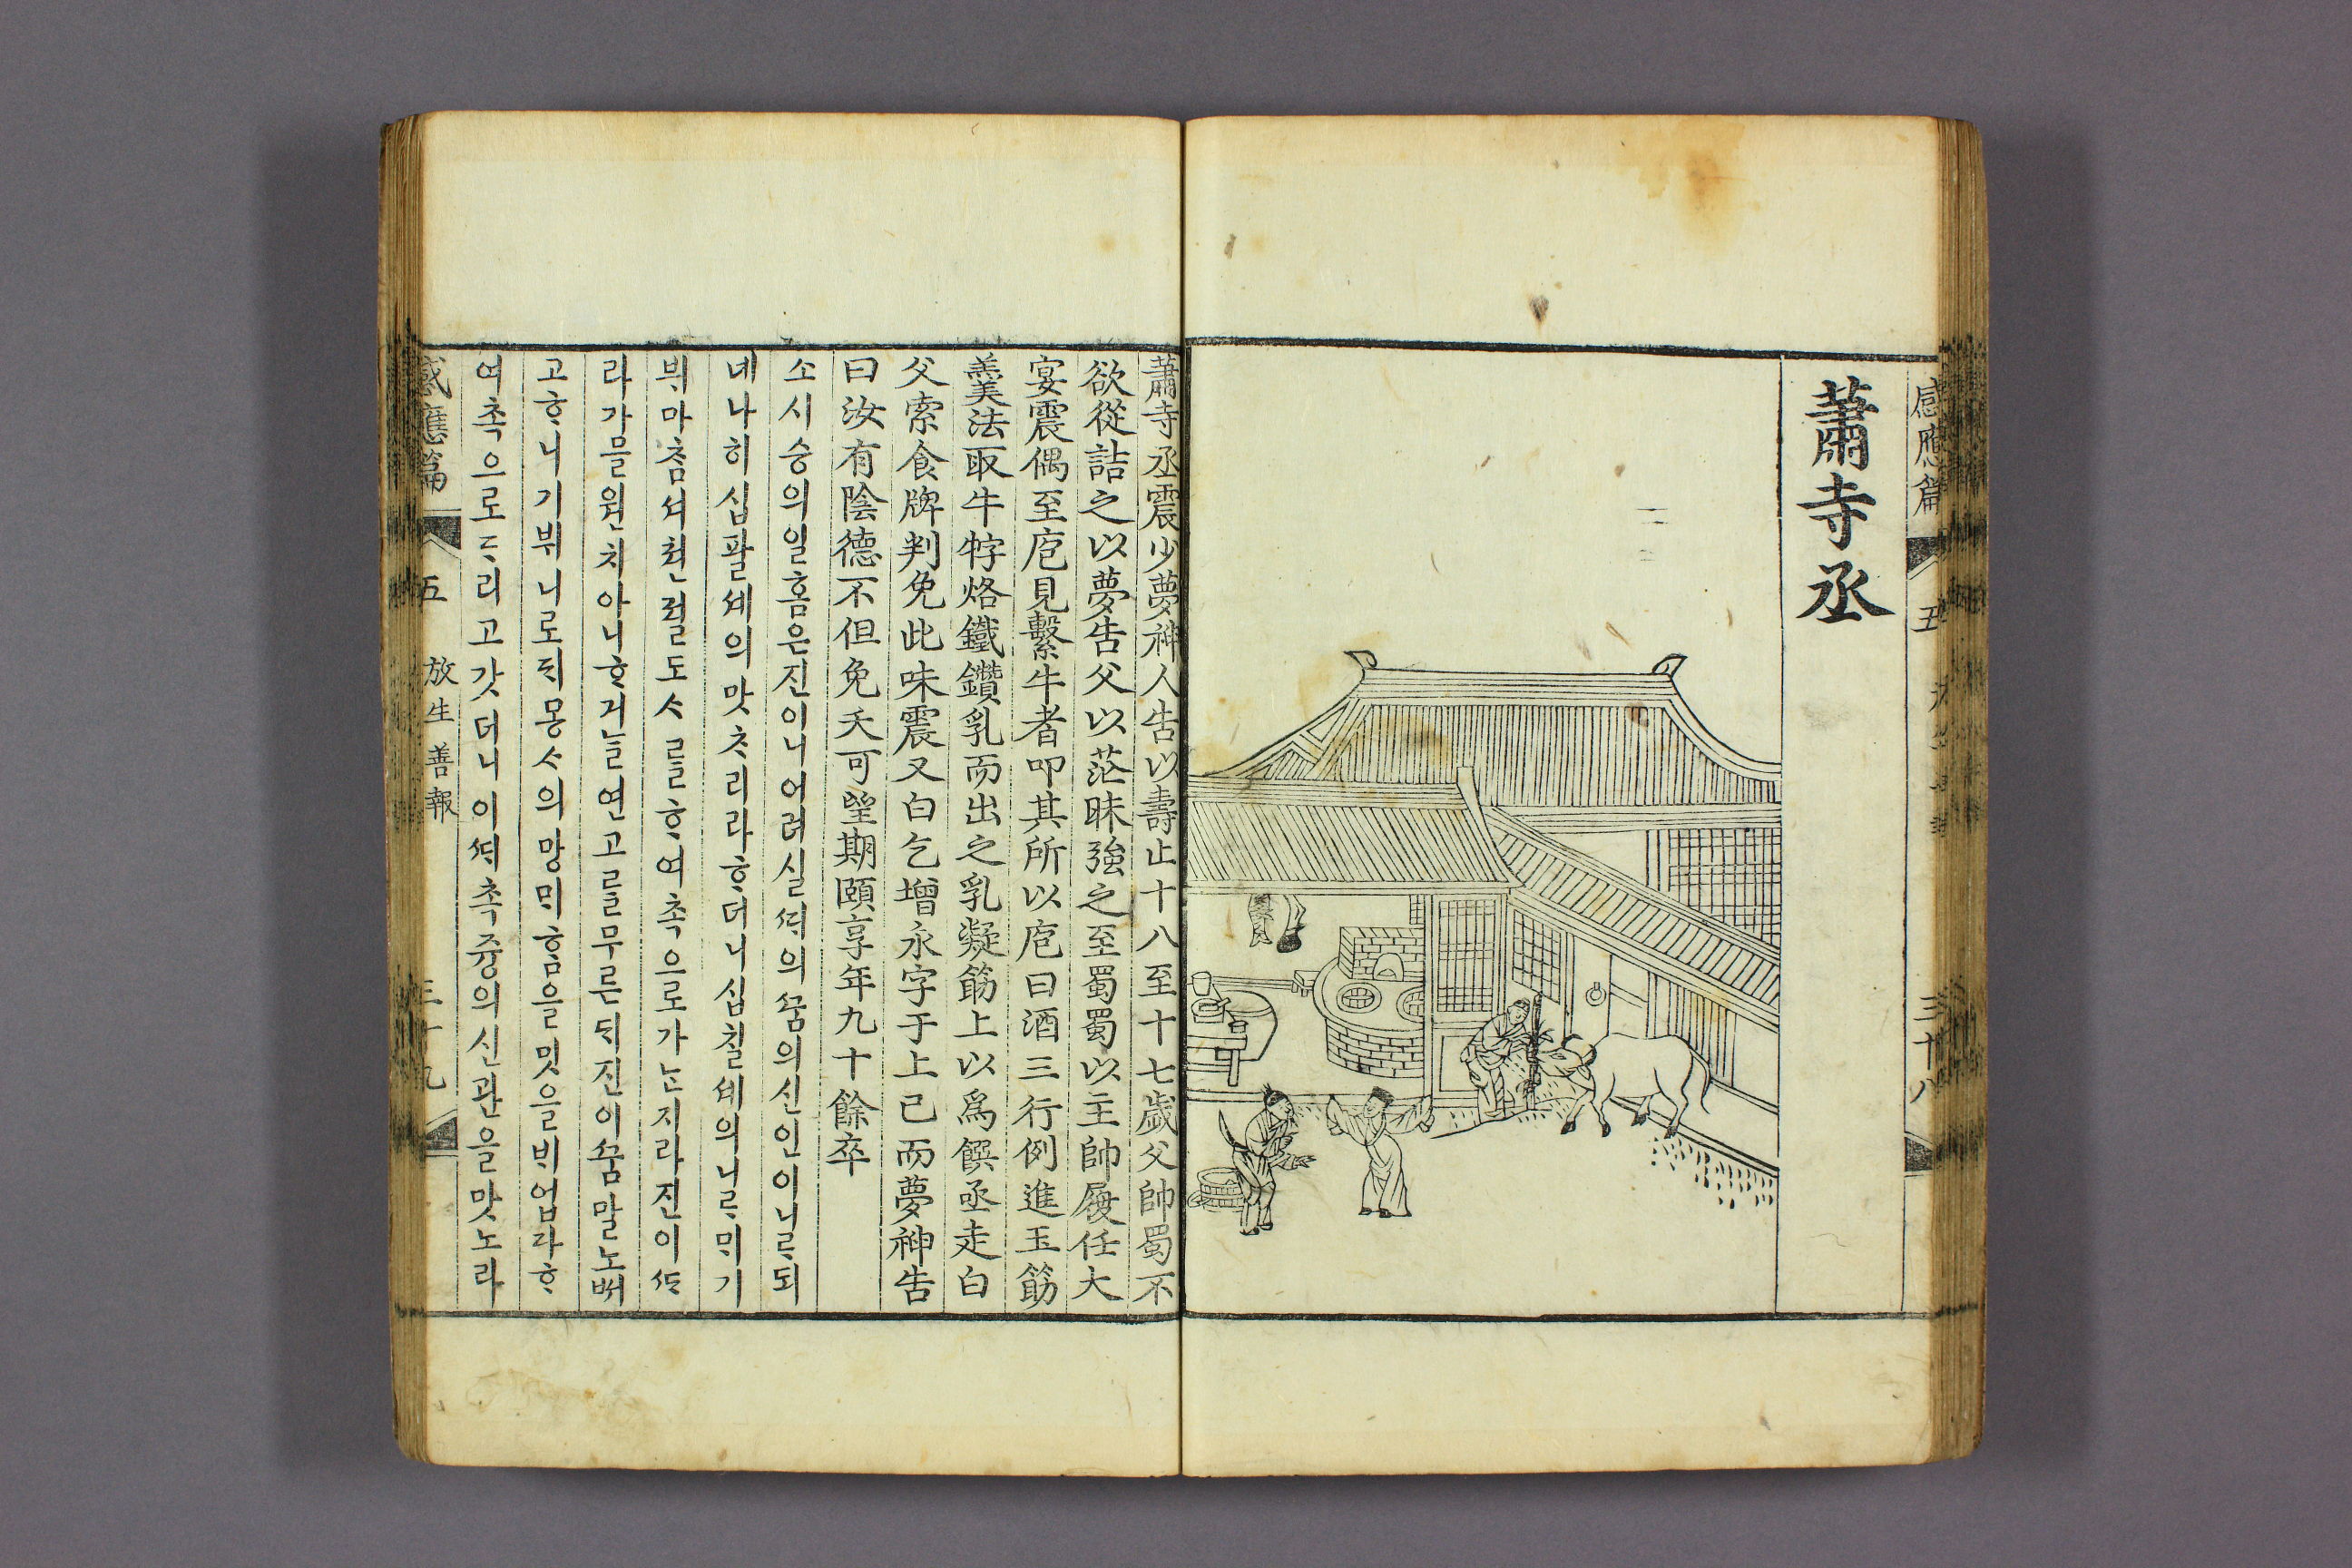 感應篇 五 三十八
蕭寺丞
蕭寺丞震少夢神人告以壽止十八至十七歲父帥蜀不
欲從詰之以夢告父以茫昧強之至蜀蜀以主帥履任大
宴震偶至庖見繫牛者叩其所以庖曰酒三行例進玉筯
羹羹法取牛牸烙鐵鑽乳而出之乳凝筯上以爲饌丞走白
父索食牌判免此味震又白乞增永字于上已而夢神告
曰汝有陰德不但免夭可望期頤享年九十餘卒
소시승의일홈은진이니어려실ᄯᅢ의ᄭᅮᆷ의신인이니ᄅᆞ되
네나히십팔셰의맛ᄎᆞ리라ᄒᆞ더니십칠셰의니ᄅᆞᄆᆡ기
뷔마ᄎᆞᆷ셔쳔졀도ᄉᆞᄅᆞᆯᄒᆞ여촉으로가ᄂᆞᆫ지라진이ᄯᆞ
라가믈원치아니ᄒᆞ거ᄂᆞᆯ연고ᄅᆞᆯ무른ᄃᆡ진이ᄭᅮᆷ말노ᄡᅥ
고ᄒᆞ니기뷔니로ᄃᆡ몽ᄉᆞ의망ᄆᆡᄒᆞᆷ을밋을ᄇᆡ업다ᄒᆞ
여촉으로ᄃᆞ리고갓더니이ᄯᅢ촉즁의신관을맛노라
感應篇 五 放生善報 三十九